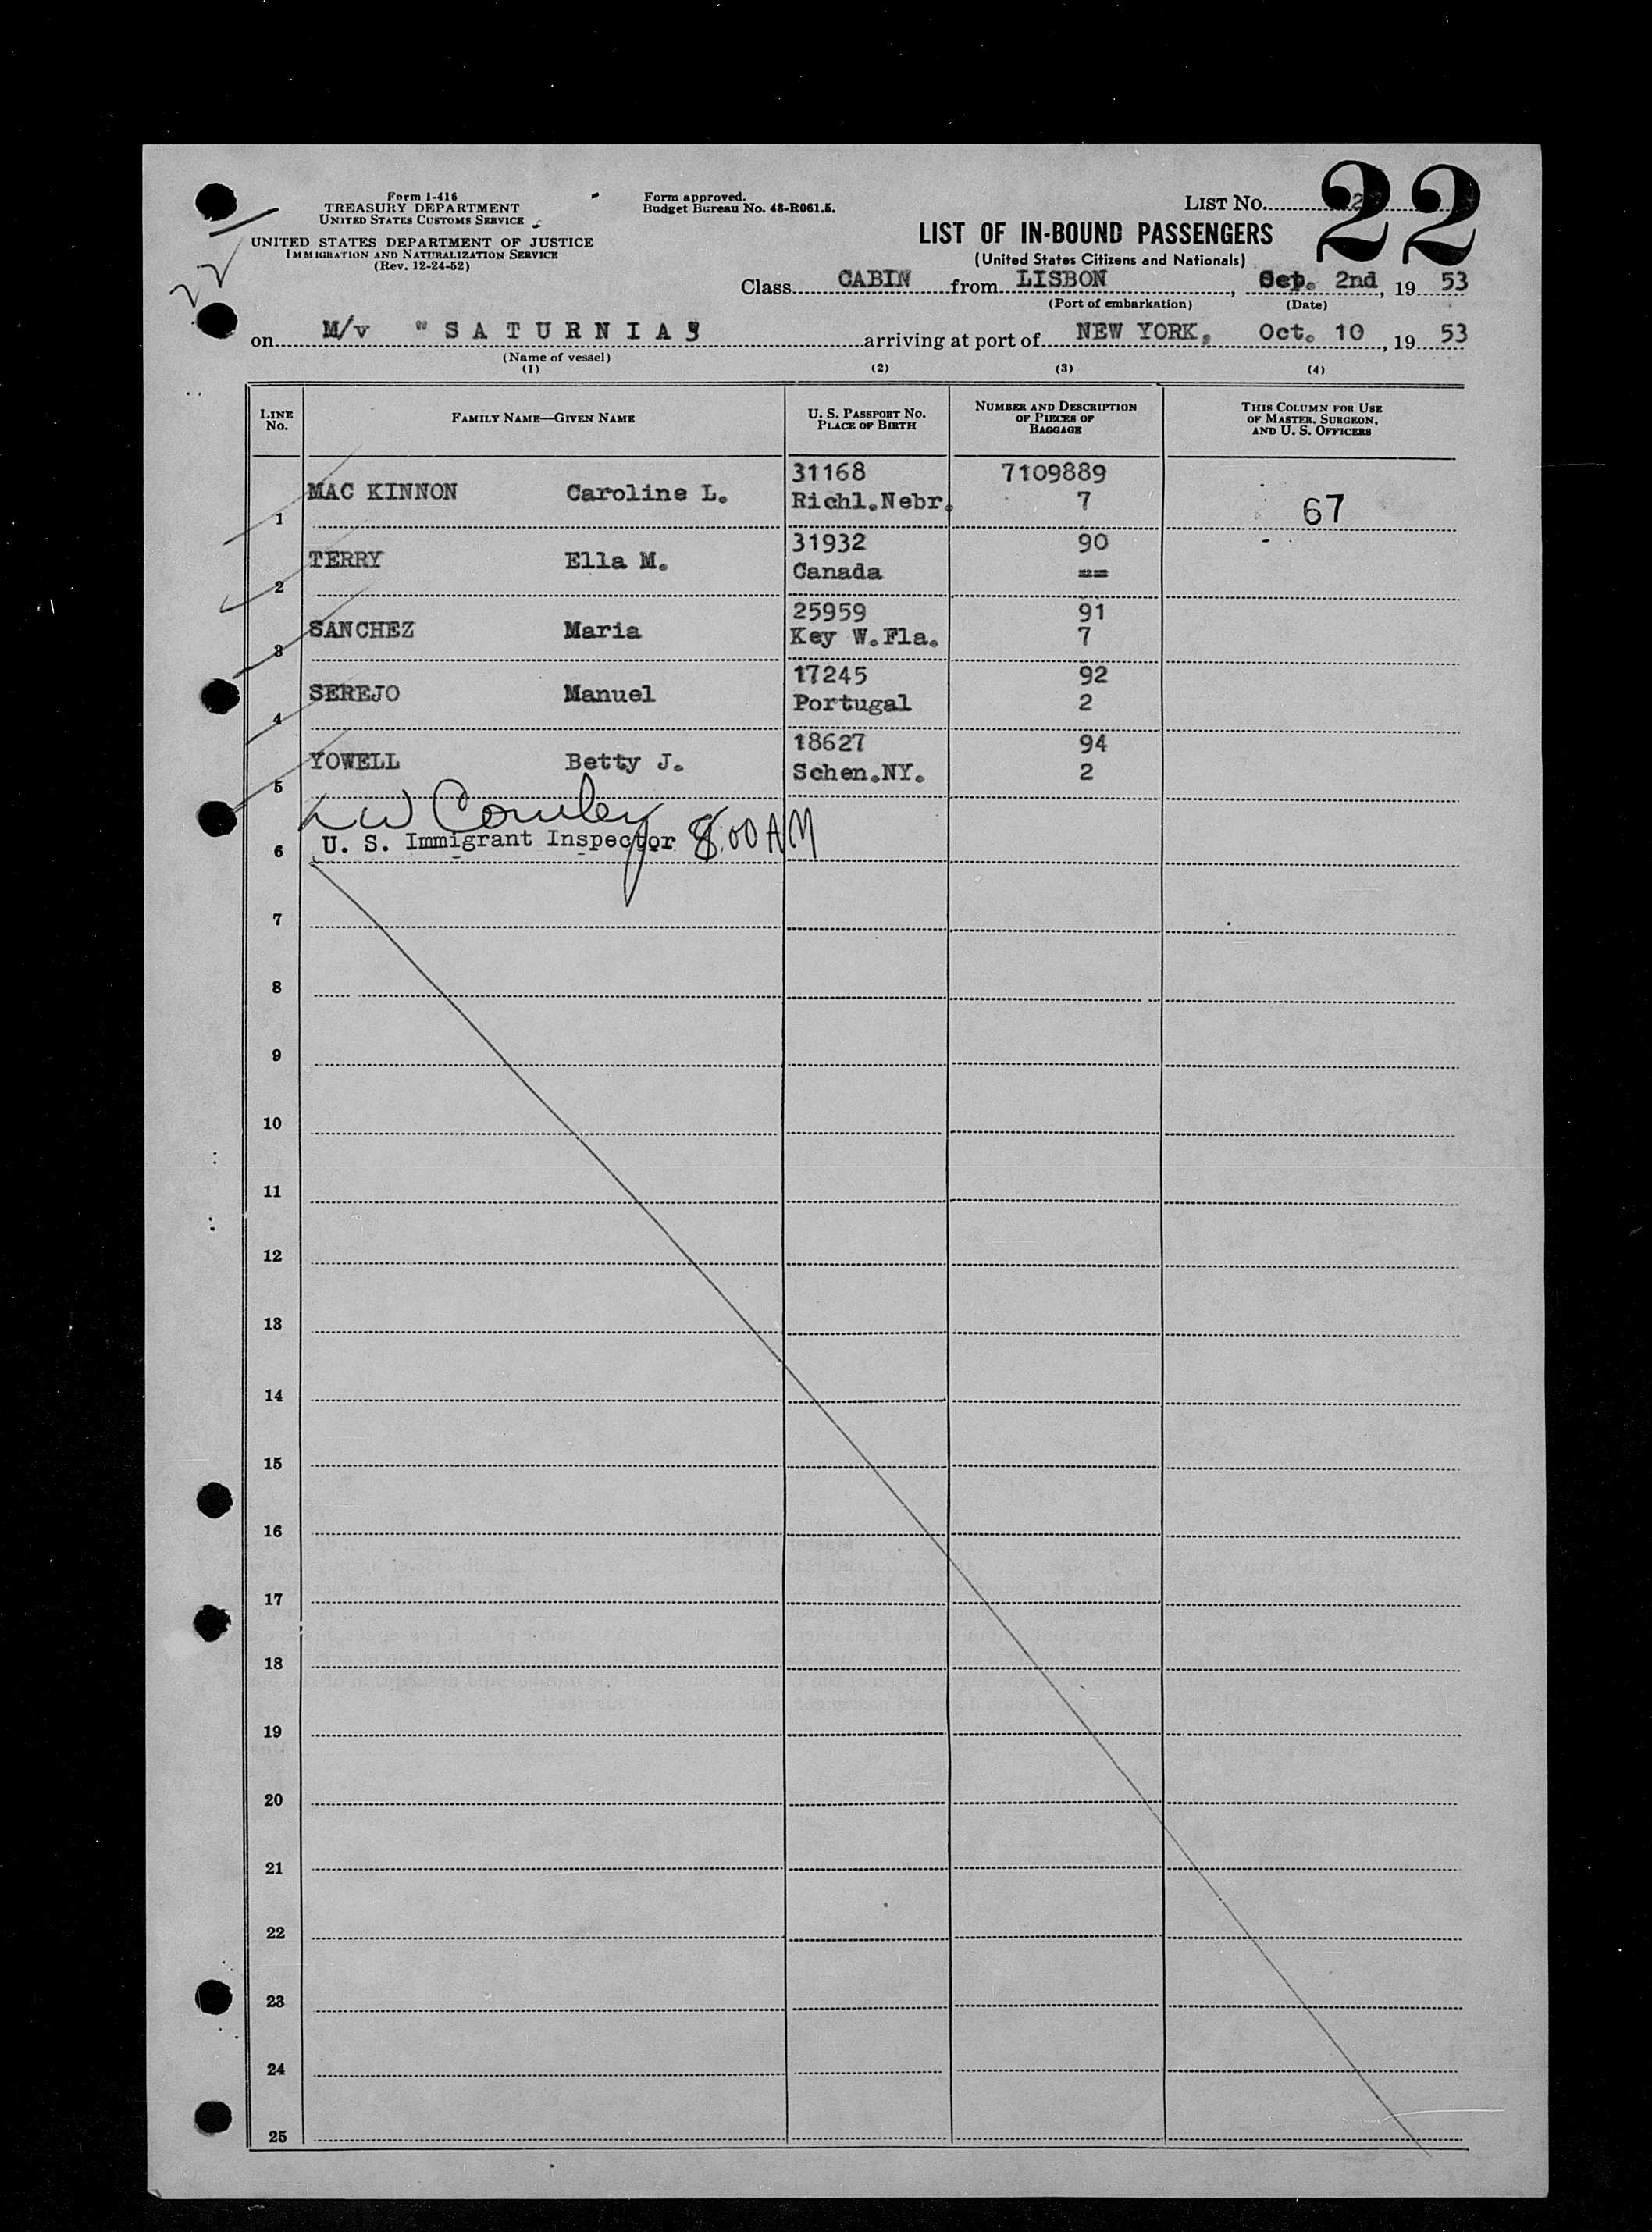 Form I-416
TREASURY DEPARTMENT
UNITED STATES CUSTOMS SERVICE
UNITED STATES DEPARTMENT OF JUSTICE
IMMIGRATION AND NATURALIZATION SERVICE
(Rev. 12-24-52)
Form approved.
Budget Bureau No. 43-R061.5.
LIST No. 22
LIST OF IN-BOUND PASSENGERS
(United States Citizens and Nationals)
Class CABIN from LISBON, 2nd, 19 53
(Port of embarkation) (Date)
on M/v "SATURNIA arriving at port of NEW YORK, Oct. 10, 19 53
(Name of vessel)
(1) (2) (3) (4)
LINE No. FAMILY NAME—GIVEN NAME U. S. PASSPORT No. PLACE OF BIRTH NUMBER AND DESCRIPTION OF PIECES OF BAGGAGE THIS COLUMN FOR USE OF MASTER, SURGEON, AND U. S. OFFICERS
31168 7109889
1 MAC KINNON Caroline L. Richl.Nebr. 7 67
31932 90
2 TERRY Ella M. Canada ==
25959 91
3 SANCHEZ Maria Key W.Fla. 7
17245 92
4 SEREJO Manuel Portugal 2
18627 94
5 YOWELL Betty J. Schen.NY. 2
6 U. S. Immigrant Inspector 8:00 AM
7
8
9
10
11
12
13
14
15
16
17
18
19
20
21
22
23
24
25